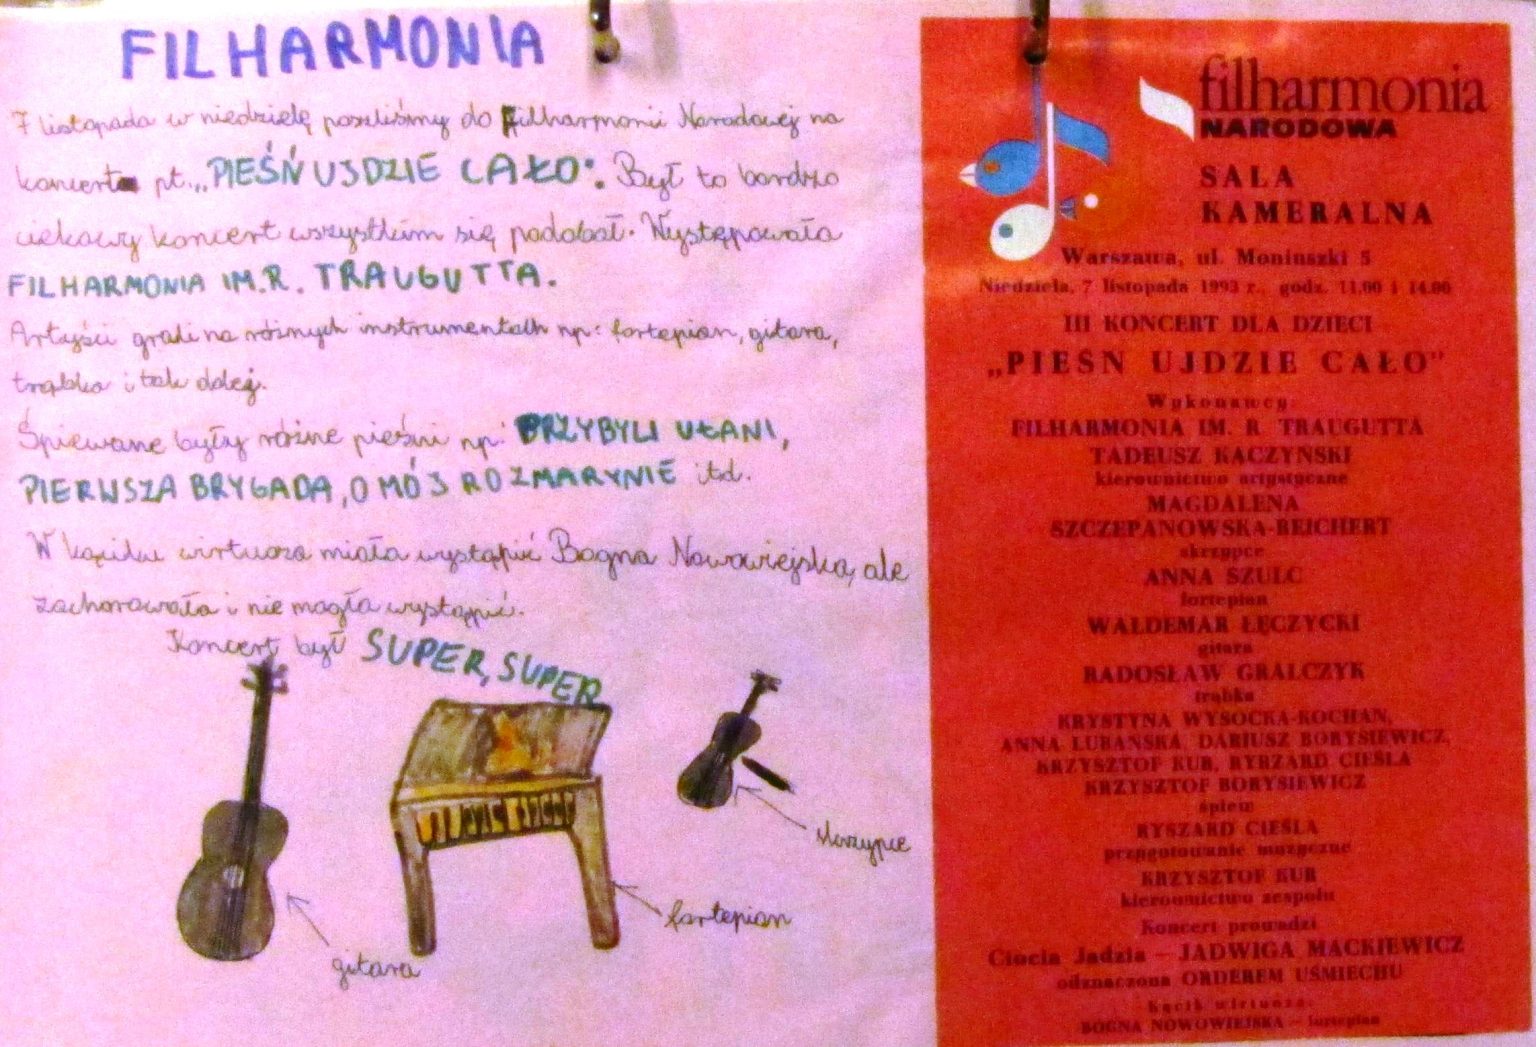 FILHARMONIA
7 listopada w niedzielę poszliśmy do Filharmonii Narodowej na
koncert pt. „PIEŚŃ UJDZIE CAŁO". Był to bardzo
ciekawy koncert wszystkim się podobał. Występowała
FILHARMONIA IM. R. TRAUGUTTA.
Artyści grali na różnych instrumentach np: fortepian, gitara,
trąbka i tak dalej.
Śpiewane były różne pieśni np: PRZYBYLI UŁANI,
PIERWSZA BRYGADA, O MÓJ ROZMARYNIE itd.
W kąciku wirtuoza miała wystąpić Bogna Nowowiejska, ale
zachorowała i nie mogła wystąpić.
Koncert był SUPER, SUPER
gitara
fortepian
skrzypce
filharmonia
NARODOWA
SALA
KAMERALNA
Warszawa, ul. Moniuszki 5
Niedziela, 7 listopada 1993 r., godz. 11.00 i 14.00
III KONCERT DLA DZIECI
„PIEŚN UJDZIE CAŁO"
Wykonawcy:
FILHARMONIA IM. R. TRAUGUTTA
TADEUSZ KACZYŃSKI
kierownictwo artystyczne
MAGDALENA
SZCZEPANOWSKA-REICHERT
skrzypce
ANNA SZULC
fortepian
WALDEMAR ŁĘCZYCKI
gitara
RADOSŁAW GRALCZYK
trąbka
KRYSTYNA WYSOCKA-KOCHAN,
ANNA LUBAŃSKA, DARIUSZ BORYSIEWICZ,
KRZYSZTOF KUR, RYRZARD CIEŚLA
KRZYSZTOF BORYSIEWICZ
śpiew
RYSZARD CIEŚLA
przygotowanie muzyczne
KRZYSZTOF KUR
kierownictwo zespołu
Koncert prowadzi
Ciocia Jadzia – JADWIGA MACKIEWICZ
odznaczona ORDEREM UŚMIECHU
Kącik wirtuoza:
BOGNA NOWOWIEJSKA – fortepian